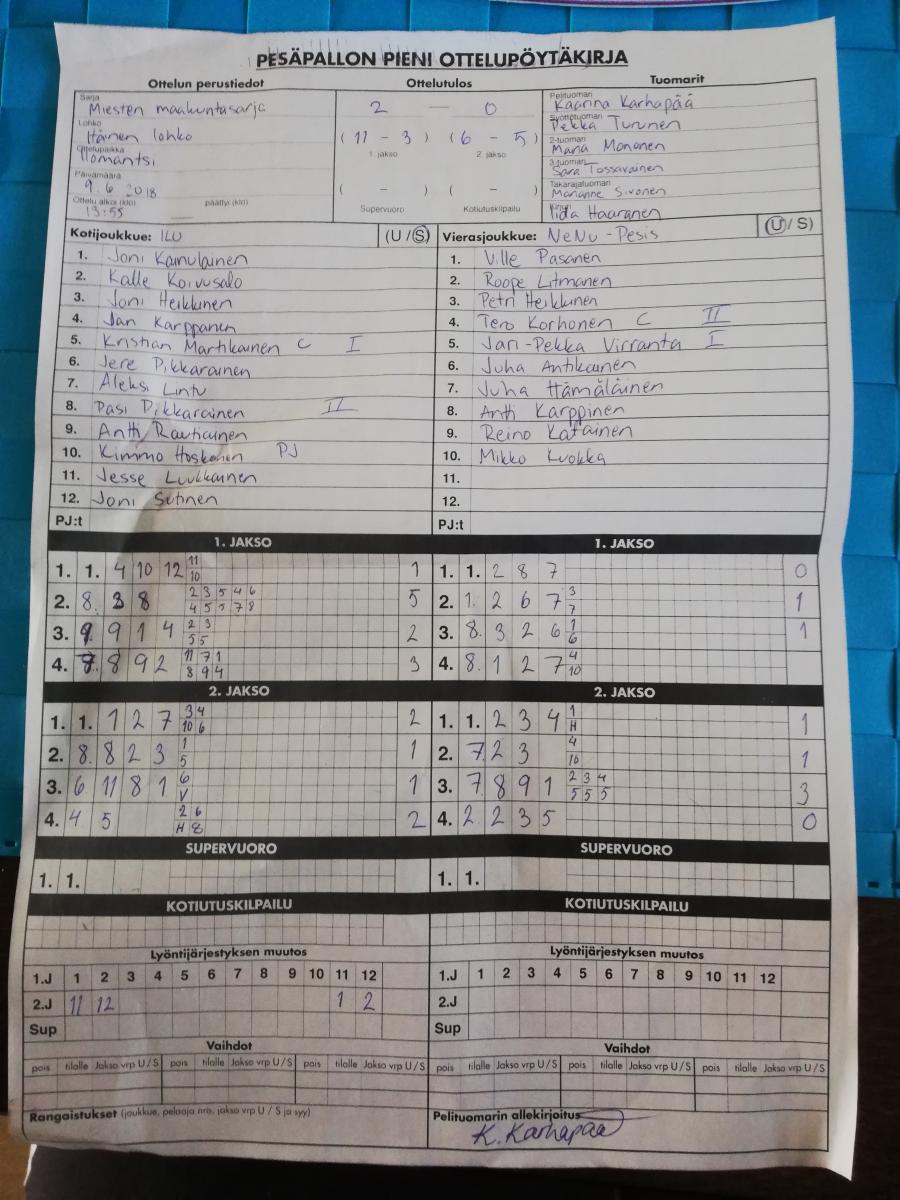 PESÄPALLON PIENI OTTELUPÖYTÄKIRJA
Ottelun perustiedot
Sarja
Miesten maakuntasarja
Lohko
Itäinen lohko
Ottelupaikka
Ilomantsi
Päivämäärä
9.6 2018
Ottelu alkoi (klo) päättyi (klo)
13:55
Ottelutulos
2 — 0
( 11 – 3 ) ( 6 – 5 )
1. jakso 2. jakso
( – ) ( – )
Supervuoro Kotiutuskilpailu
Tuomarit
Pelituomari
Kaarina Karhapää
Syöttötuomari
Pekka Turunen
2-tuomari
Maria Mononen
3-tuomari
Sara Tossavainen
Takarajatuomari
Marianne Sivonen
Kirjuri
Iida Haaranen
Kotijoukkue: ILU (U / S)
1. Joni Kainulainen
2. Kalle Koivusalo
3. Joni Heikkinen
4. Jan Karppanen
5. Kristian Martikainen C I
6. Jere Pikkarainen
7. Aleksi Lintu
8. Pasi Pikkarainen II
9. Antti Rautiainen
10. Kimmo Hoskonen PJ
11. Jesse Luukkainen
12. Joni Sutinen
PJ:t
Vierasjoukkue: NeNu-Pesis (U / S)
1. Ville Pasanen
2. Roope Litmanen
3. Petri Heikkinen
4. Tero Korhonen C II
5. Jari-Pekka Virranta I
6. Juha Antikainen
7. Juha Hämäläinen
8. Antti Karppinen
9. Reino Katainen
10. Mikko Kuokka
11.
12.
PJ:t
1. JAKSO
1. 1. 4 10 12 11 1
10
2. 8. 3 8 2 3 5 4 6 5
4 5 5 7 8
3. 9. 9 1 4 2 3 2
5 5
4. 7. 8 9 2 11 7 1 3
8 9 4
1. JAKSO
1. 1. 2 8 7 0
2. 1. 2 6 7 3 1
7
3. 8. 3 2 6 1 1
6
4. 8. 1 2 7 4
10
2. JAKSO
1. 1. 1 2 7 3 4 2
10 6
2. 8 8 2 3 1 1
5
3. 6 11 8 1 6 1
V
4. 4 5 2 6 2
H 8
2. JAKSO
1. 1. 2 3 4 1 1
H
2. 7. 2 3 4 1
10
3. 7 8 9 1 2 3 4 3
5 5 5
4. 2. 2 3 5 0
SUPERVUORO
1. 1.
SUPERVUORO
1. 1.
KOTIUTUSKILPAILU
KOTIUTUSKILPAILU
Lyöntijärjestyksen muutos
1.J 1 2 3 4 5 6 7 8 9 10 11 12
2.J 11 12 1 2
Sup
Lyöntijärjestyksen muutos
1.J 1 2 3 4 5 6 7 8 9 10 11 12
2.J
Sup
Vaihdot
pois tilalle Jakso vrp U / S pois tilalle Jakso vrp U / S pois tilalle Jakso vrp U / S
Vaihdot
pois tilalle Jakso vrp U / S pois tilalle Jakso vrp U / S pois tilalle Jakso vrp U / S
Rangaistukset (joukkue, pelaaja nro, jakso vrp U / S ja syy)
Pelituomarin allekirjoitus
K. Karhapää